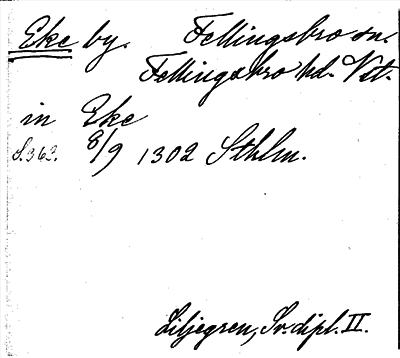 Eke by. Fellingsbro sn.
Fellingsbro hd. Vstm.
in Eke
S.363. 8/9 1302 Sthlm.
Liljegren, Sv. dipl. II.